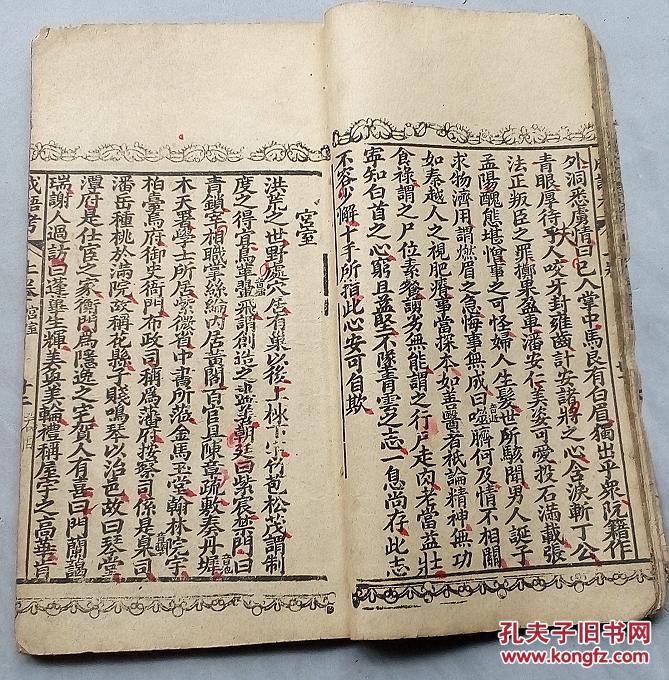 外洞悉虜情曰已入掌中馬良有白眉獨出乎衆阮籍作
青眼厚待乎人咬牙封雍齒計安諸將之心含淚斬丁公
法正叛臣之罪擲果盈車潘安仁美姿可愛投石滿載張
孟陽醜態堪憎事之可怪婦人生鬚世所駭聞男人誕子
求物濟用謂燃眉之急悔事無成曰噬臍何及情不相關
如秦越人之視肥瘠事當探本如善醫者祇論精神無功
食祿謂之尸位素餐謭劣無能謂之行尸走肉老當益壯
寧知白首之心窮且益堅不墜青雲之志一息尚存此志
不容少懈十手所指此心安可自欺
宮室
洪荒之世野處穴居有巢以後上棟下宇竹苞松茂謂制
度之得宜鳥革翬飛謂創造之盡善朝廷曰紫宸禁門曰
青鎖宰相職掌絲綸內居黃閣百官具陳章疏敷奏丹墀
木天署學士所居紫薇省中書所蒞金馬玉堂翰林院宇
柏臺烏府御史衙門布政司稱為藩府按察司係是臬司
潘岳種桃於滿院故稱花縣子賤鳴琴以治邑故曰琴堂
潭府是仕臣之家衡門為隱逸之宅賀人有喜曰門闌藹
瑞謝人過訪曰蓬蓽生輝美奐美輪禮稱屋宇之高華肯
成語考 上卷 宮室
孔夫子旧书网
www.kongfz.com